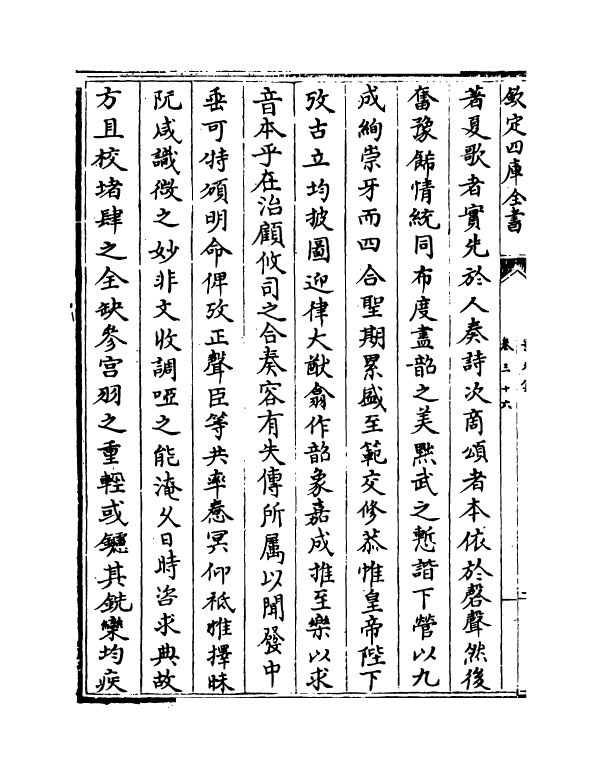 欽定四庫全書
卷三十六
著夏歌者實先於人奏詩次商頌者本依於磬聲然後
奮豫飾情統同布度盡韶之美黜武之慙諧下管以九
成絢崇牙而四合聖期累盛至範交修恭惟皇帝陛下
攷古立均披圖迎律大猷翕作韶象嘉成推至樂以求
音本乎在治顧攸司之合奏容有失傳所属以聞發中
垂可特頒明命俾攷正聲臣等共率惷冥仰祗惟擇昧
阮咸識徴之妙非文收調啞之能淹久日時咨求典故
方且校堵肆之全缺參宫羽之重輕或鑢其銑欒均疾